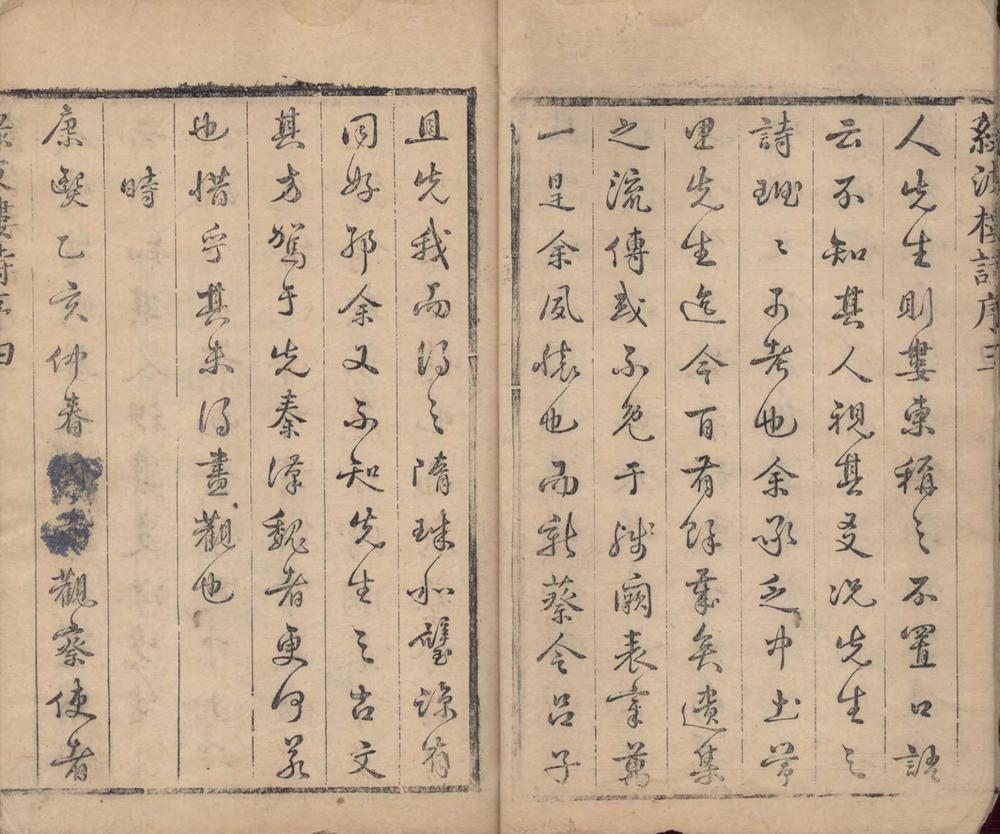 綠波樓詩序三
人先生則婁東稱之不置口語
云不知其人視其友況先生之
詩班〻可考也余承乏中土嘗
里先生迄今百有餘歲矣遺集
之流傳或不免于殘闕表章萬
一是余夙懷也而新蔡令呂子
且先我而得之隋珠和璧諒有
同好耶余又不知先生之古文
其方駕于先秦漢魏者更何若
也惜乎其未得盡觀也
時
康熙乙亥仲春觀察使者
綠波樓詩序四